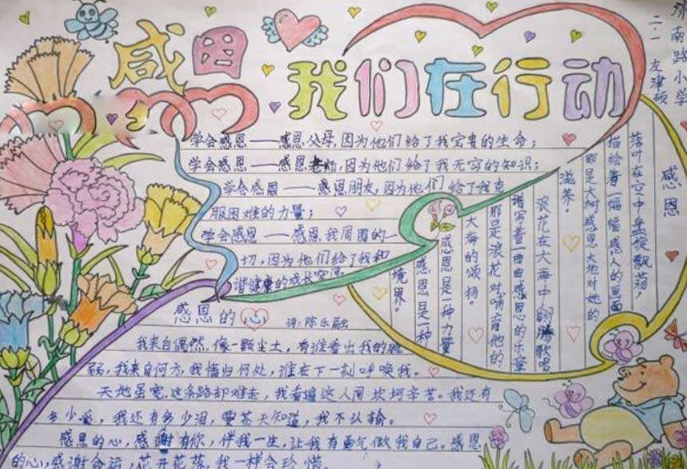 感恩
我们在行动
济南路小学
二·一 左津硕
学会感恩——感恩父母,因为他们给了我宝贵的生命;
学会感恩——感恩老师,因为他们给了我无穷的知识;
学会感恩——感恩朋友,因为他们给了我克
服困难的力量;
学会感恩——感恩我周围的一
切,因为他们给了我和
谐健康的成长空间
感恩
落叶在空中盘旋飘荡,
描绘着一幅幅感人的画面
那是大树感恩大地对她的
滋养。
浪花在大海中翻腾歌唱
谱写着一曲曲感恩的乐章
那是浪花对哺育他的
大海的颂扬。
感恩是一种力量
感恩是一种
境界。
感恩的心 词:陈乐融
我来自偶然,像一颗尘土,有谁看出我的脆
弱,我来自何方,我情归何处,谁在下一刻呼唤我。
天地虽宽,这条路却难走,我看遍这人间坎坷辛苦。我还有
多少爱,我还有多少泪,要苍天知道,我不认输。
感恩的心,感谢有你,伴我一生,让我有勇气做我自己。感恩
的心,感谢命运,花开花落,我一样会珍惜